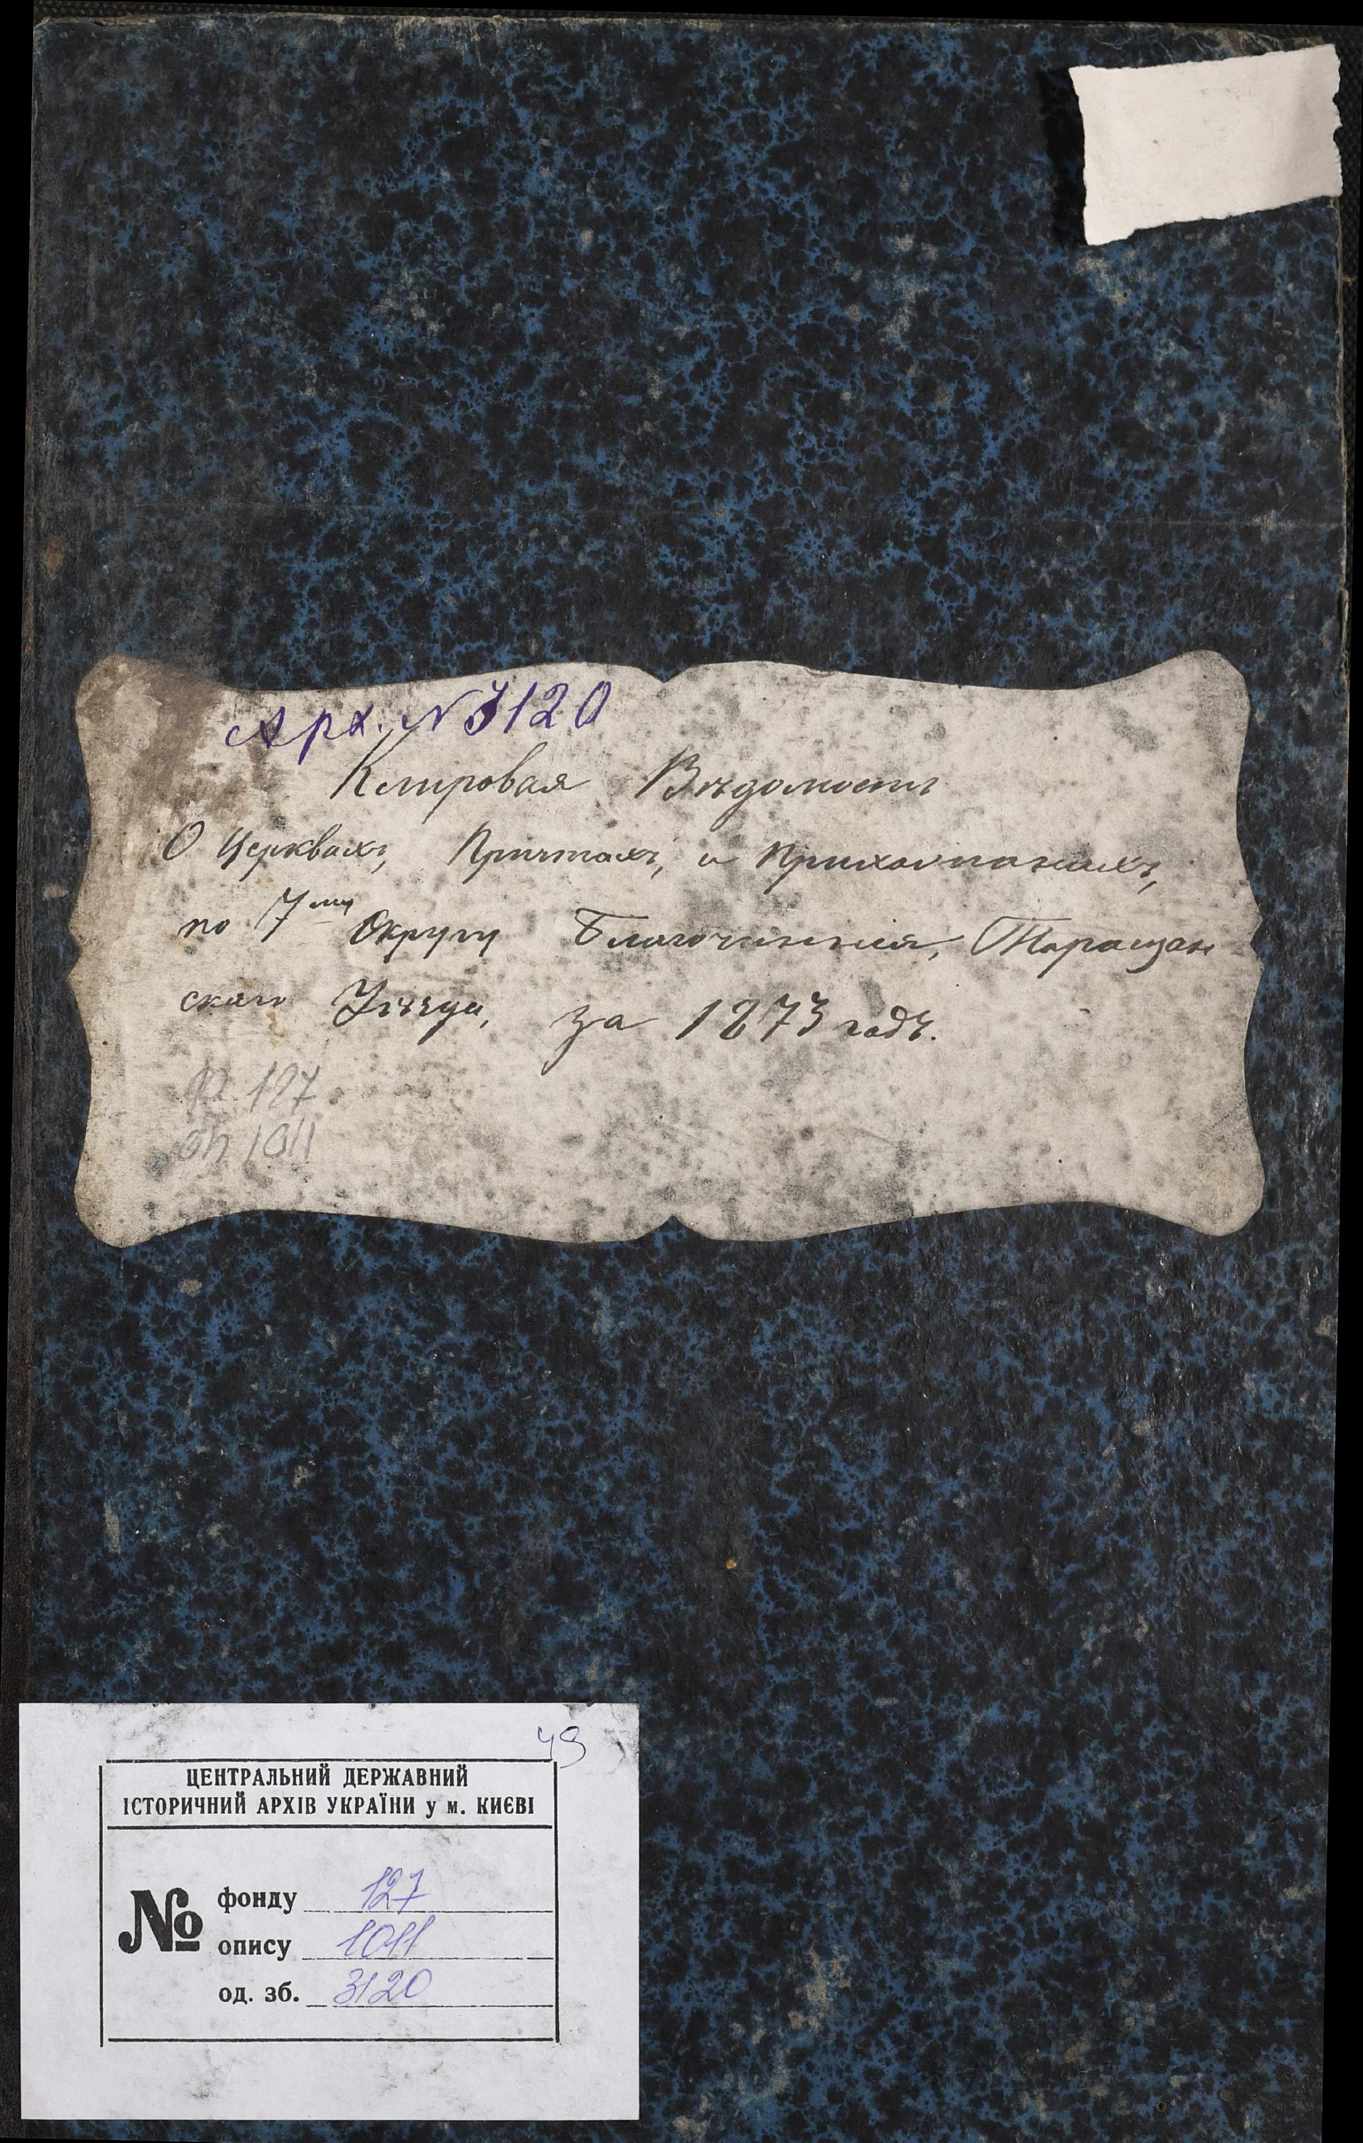 Арх. № 3120
Клировая Вѣдомость
О Церквахъ, Причтахъ, и Прихожанахъ,
по 7му Округу Благочинія, Таращан
скаго Уѣзда, за 1873 годъ.
ф. 127
оп 1011
49
ЦЕНТРАЛЬНИЙ ДЕРЖАВНИЙ
ІСТОРИЧНИЙ АРХІВ УКРАЇНИ у м. КИЄВІ
№ фонду 127
опису 1011
од. зб. 3120